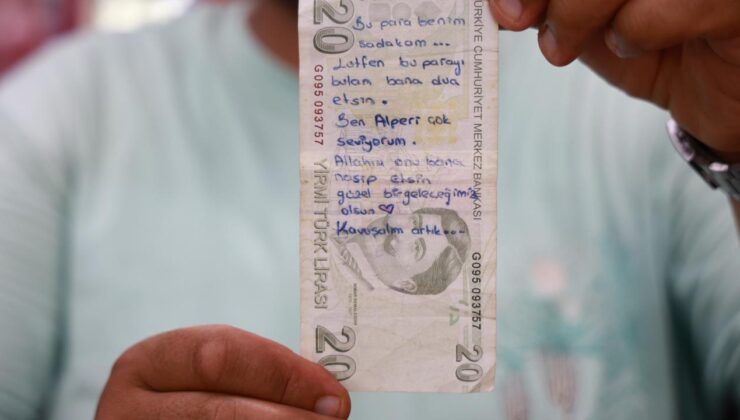 20
Bu para benim
sadakam ...
Lütfen bu parayı
bulan bana dua
etsin.
Ben Alperi çok
seviyorum.
Allahım onu bana
nasip etsin
güzel bir geleceğimiz
olsun ♡
Kavuşalım artık...
G095 093757
YİRMİ TÜRK LİRASI
20
TÜRKİYE CUMHURİYET MERKEZ BANKASI
G095 093757
20